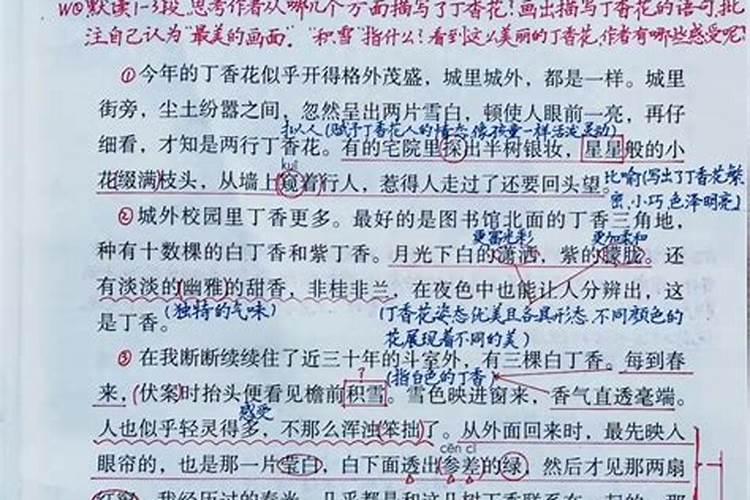 默读1-3段,思考作者从哪几个方面描写了丁香花?画出描写丁香花的语句,批
注自己认为"最美的画面"."积雪"指什么?看到这么美丽的丁香花,作者有哪些感受呢?
①今年的丁香花似乎开得格外茂盛,城里城外,都是一样。城里
街旁,尘土纷嚣之间,忽然呈出两片雪白,顿使人眼前一亮,再仔
拟人(赋予丁香花人的情态,像孩童一样活泼灵动)
细看,才知是两行丁香花。有的宅院里探出半树银妆,星星般的小
kuī
花缀满枝头,从墙上窥着行人,惹得人走过了还要回头望。
比喻(写出了丁香花繁
密、小巧、色泽明亮)
②城外校园里丁香更多。最好的是图书馆北面的丁香三角地,
更富光彩 更加柔和
种有十数棵的白丁香和紫丁香。月光下白的潇洒,紫的朦胧。还
有淡淡的幽雅的甜香,非桂非兰,在夜色中也能让人分辨出,这
是丁香。
(独特的气味)
(丁香花姿态优美且各具形态,不同颜色的
花展现着不同的美)
③在我断断续续住了近三十年的斗室外,有三棵白丁香。每到春
?
(指白色的丁香)
来,伏案时抬头便看见檐前积雪。雪色映进窗来,香气直透毫端。
感受
人也似乎轻灵得多,不那么浑浊笨拙了。从外面回来时,最先映人
cēn cī
眼帘的,也是那一片莹白,白下面透出参差的绿,然后才见那两扇
红窗。我经历过的春光,几乎都是和这几树丁香联系在一起的。那